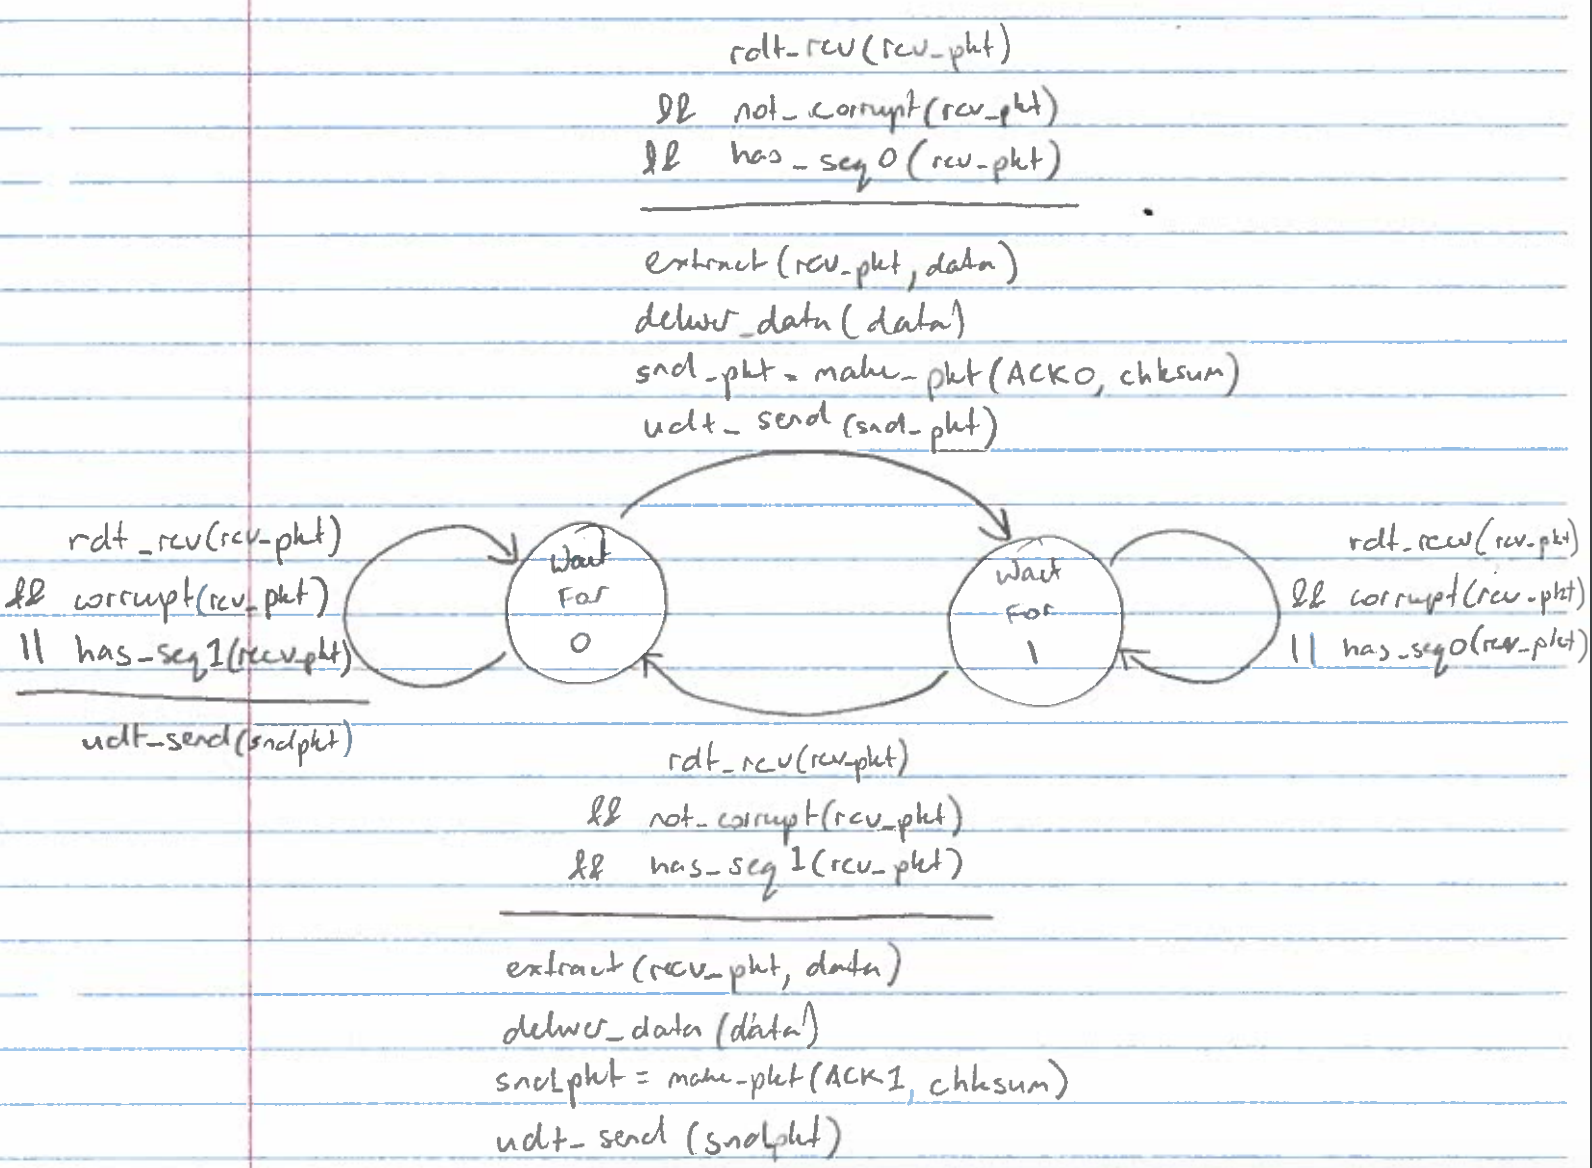 rdt_rcv(rcv_pkt)
&& not_corrupt(rcv_pkt)
&& has_seq0(rcv_pkt)
extract(rcv_pkt, data)
deliver_data(data)
snd_pkt = make_pkt(ACK0, chksum)
udt_send(snd_pkt)
rdt_rcv(rcv_pkt)
&& corrupt(rcv_pkt)
|| has_seq1(recv_pkt)
udt_send(sndpkt)
Wait
For
0
Wait
For
1
rdt_rcv(rcv_pkt)
&& corrupt(rcv_pkt)
|| has_seq0(rcv_pkt)
rdt_rcv(rcv_pkt)
&& not_corrupt(rcv_pkt)
&& has_seq1(rcv_pkt)
extract(recv_pkt, data)
deliver_data(data)
sndpkt = make_pkt(ACK1, chksum)
udt_send(sndpkt)